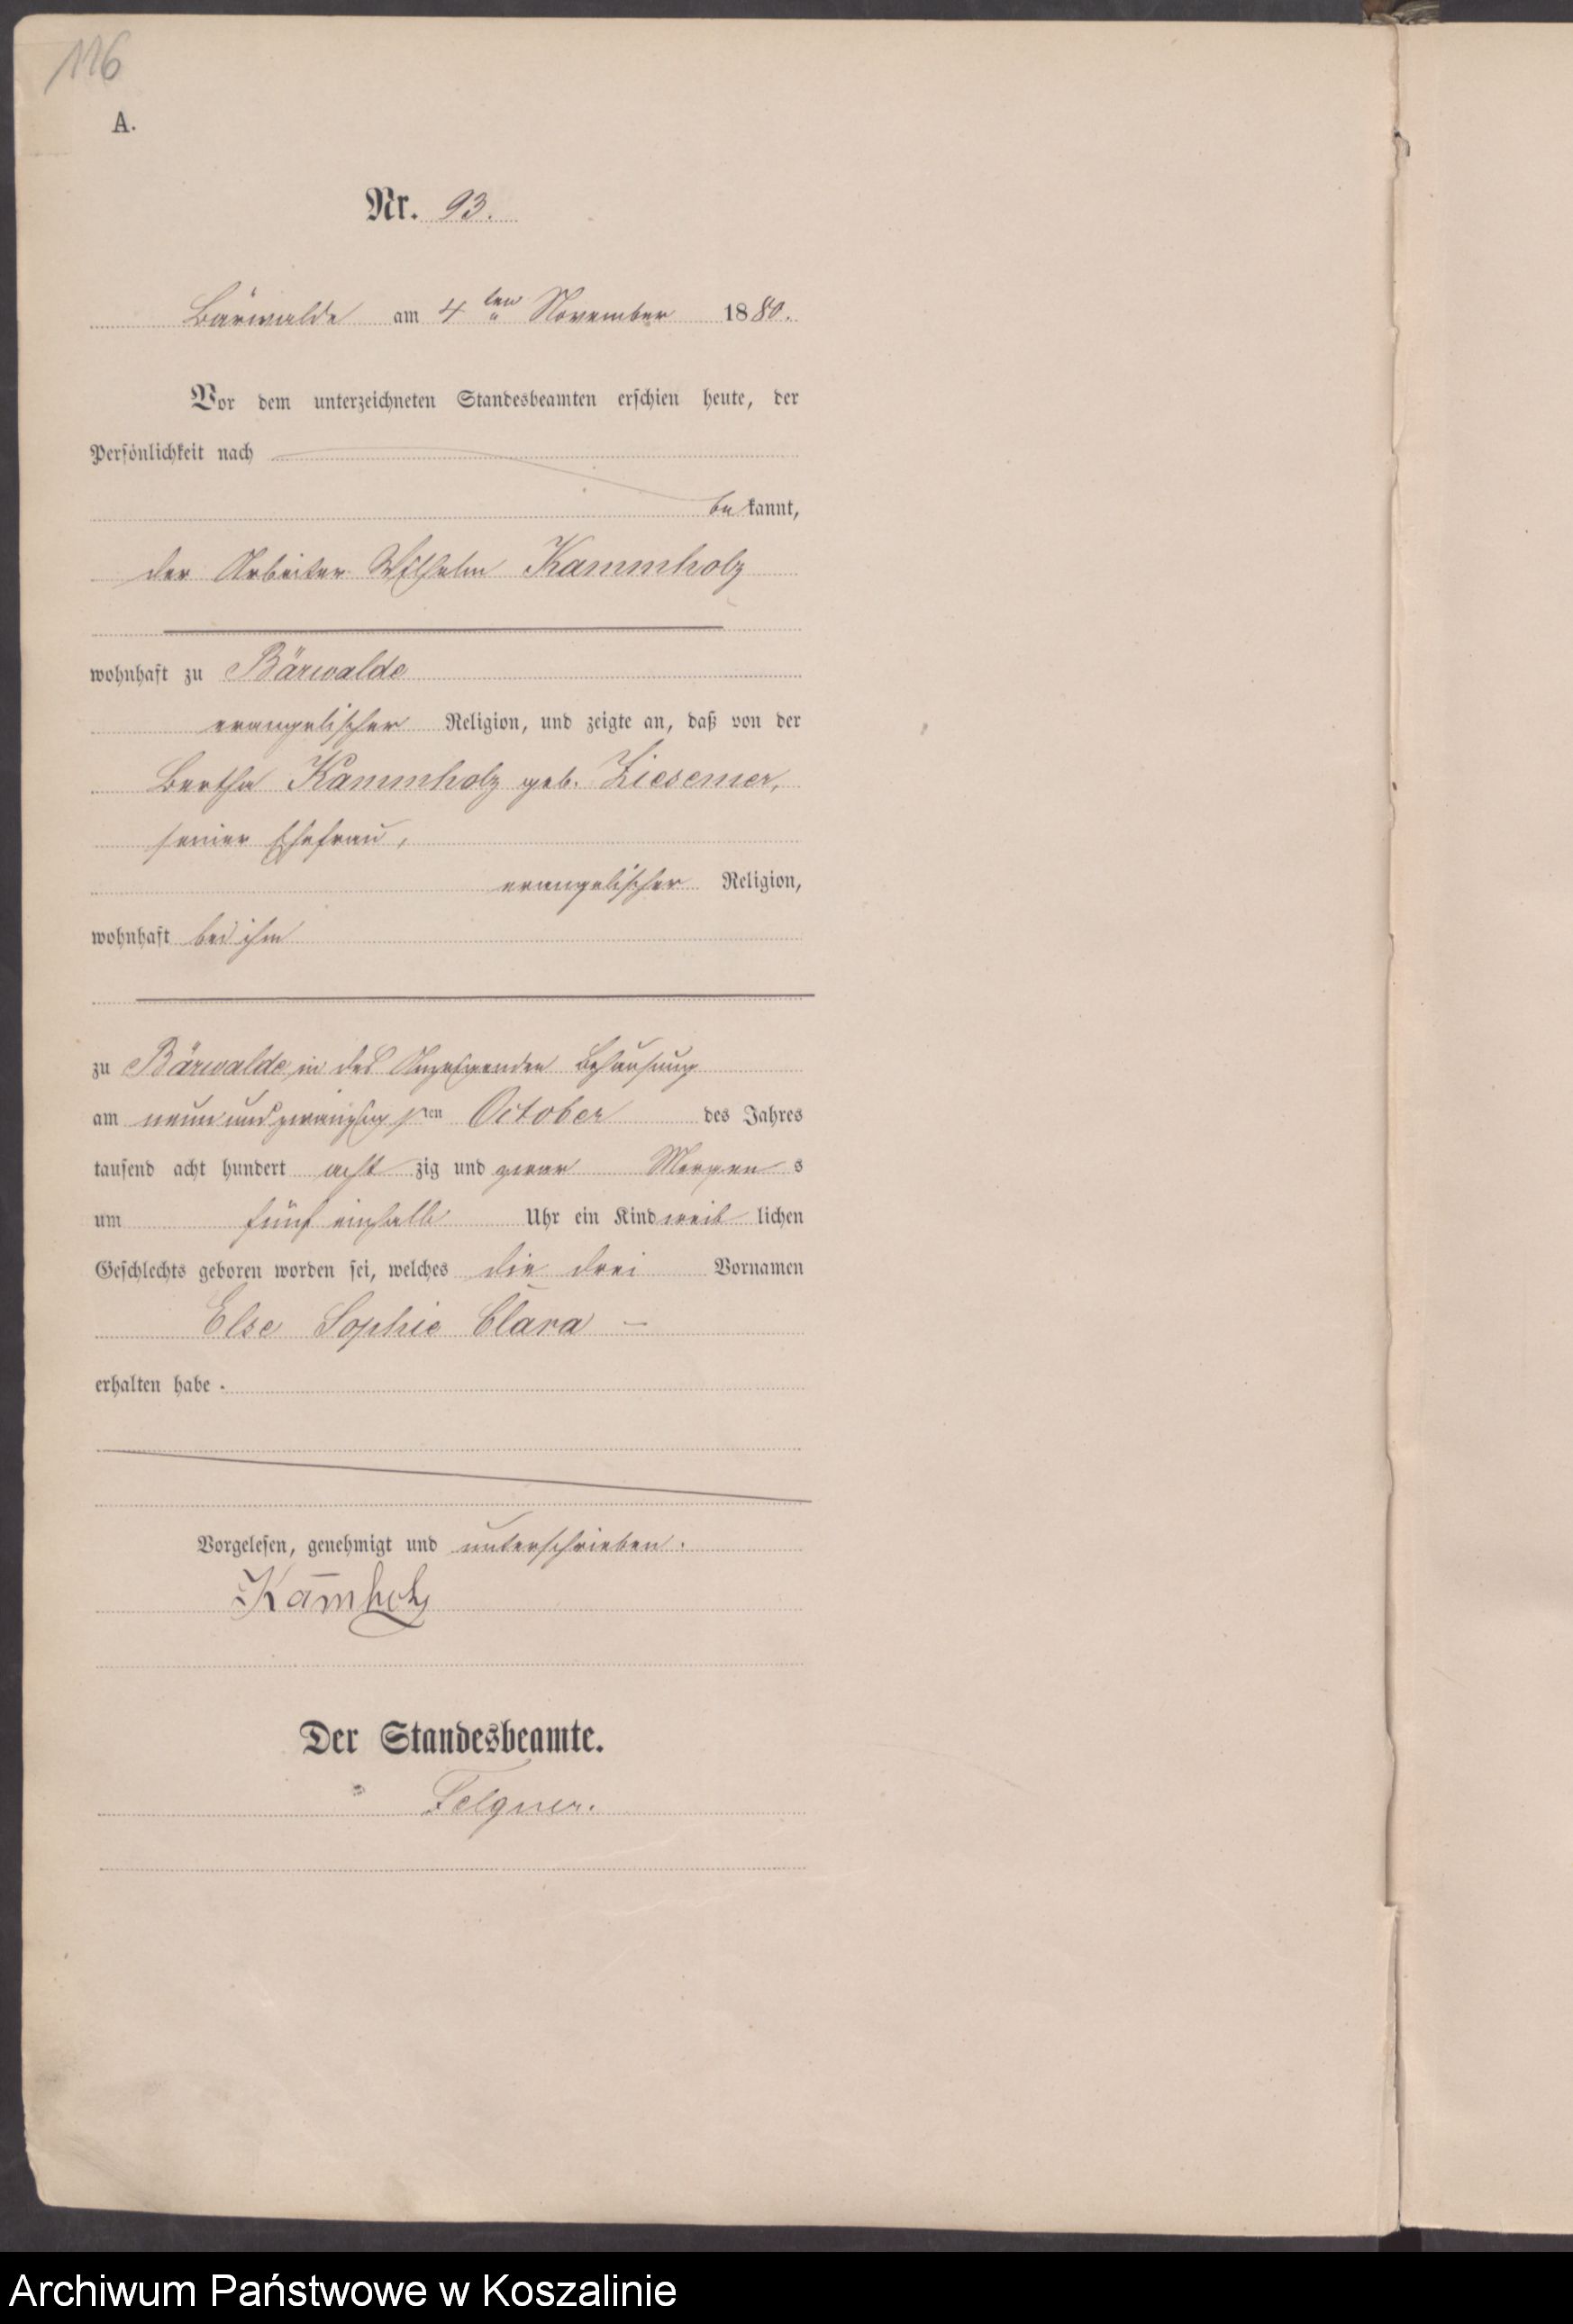 116
A.
Nr. 93.
Bärwalde am 4ten November 1880.
Vor dem unterzeichneten Standesbeamten erschien heute, der
Persönlichkeit nach
bekannt,
der Arbeiter Wilhelm Kammholz
wohnhaft zu Bärwalde
evangelischer Religion, und zeigte an, daß von der
Bertha Kammholz geb. Ziesemer,
seiner Ehefrau,
evangelischer Religion,
wohnhaft bei ihm
zu Bärwalde in des Anzeigenden Behausung
am neun und zwanzigsten October des Jahres
tausend acht hundert achtzig und zwar Morgens
um fünf einhalb Uhr ein Kind weiblichen
Geschlechts geboren worden sei, welches die drei Vornamen
Else Sophie Clara –
erhalten habe.
Vorgelesen, genehmigt und unterschrieben.
Kam̄holz
Der Standesbeamte.
Felgner.
Archiwum Państwowe w Koszalinie